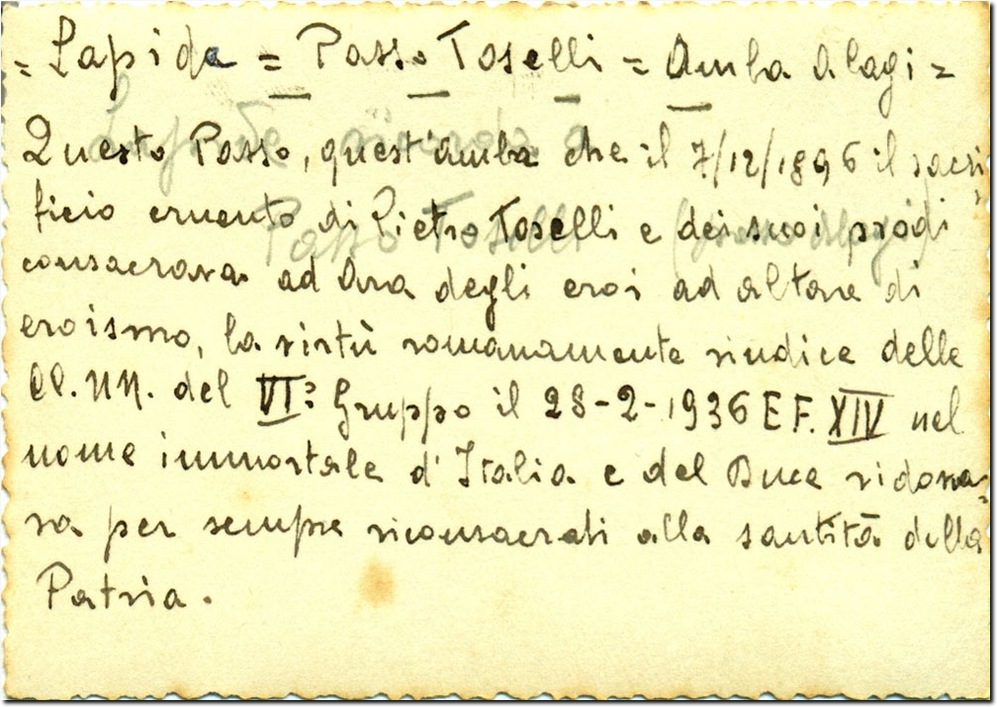 = Lapide = Passo Toselli = Amba Alagi =
Questo Passo, quest'amba che il 7/12/1896 il sacri=
ficio cruento di Pietro Toselli e dei suoi prodi
consacrava ad Ara degli eroi ad altare di
eroismo, la virtù romanamente vindice delle
CC.NN. del VI° Gruppo il 28-2-1936 E.F. XIV nel
nome immortale d'Italia e del Duce ridona=
va per sempre riconsacrati alla santità della
Patria.
Passo Toselli